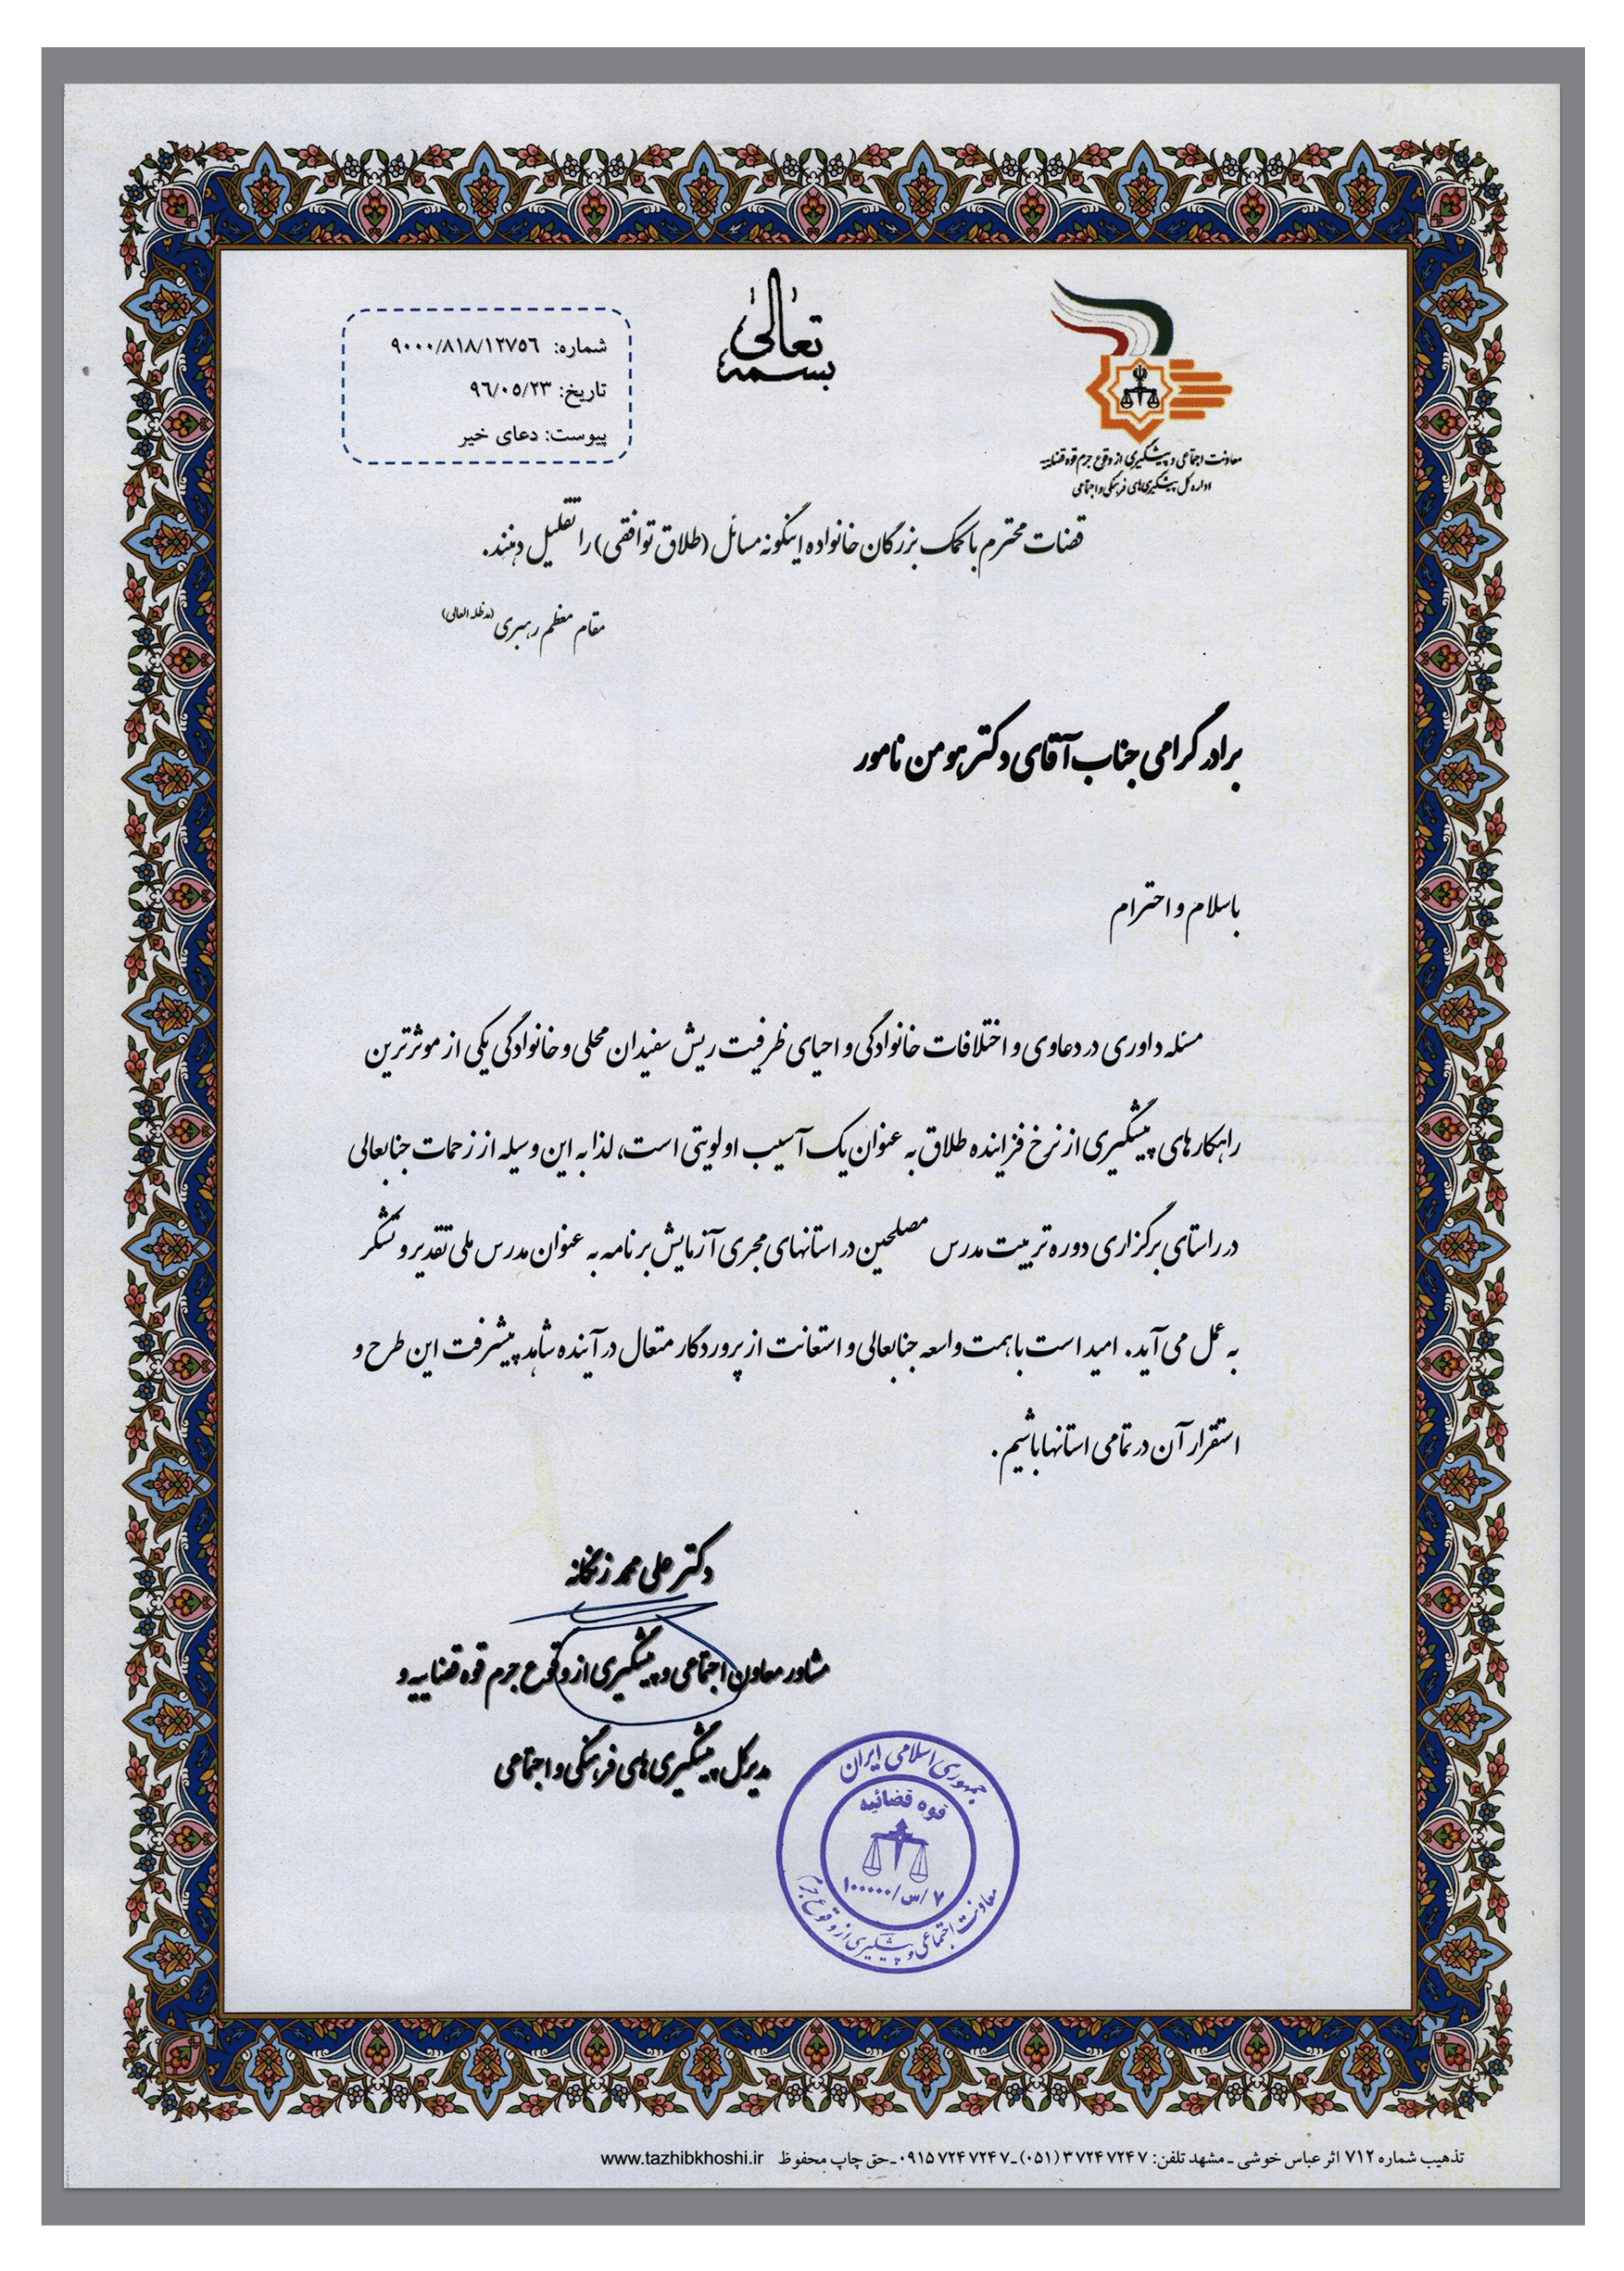 بسمه تعالی
شماره: ۹۰۰۰/۸۱۸/۱۲۷۵۶
تاریخ: ۹۶/۰۵/۲۳
پیوست: دعای خیر
معاونت اجتماعی و پیشگیری از وقوع جرم قوه قضاییه
اداره کل پیشگیری‌های فرهنگی و اجتماعی
قضات محترم با کمک بزرگان خانواده اینگونه مسائل (طلاق توافقی) را تقلیل دهند.
مقام معظم رهبری (مدظله العالی)
برادر گرامی جناب آقای دکتر هومن نامور
با سلام و احترام
مسئله داوری در دعاوی و اختلافات خانوادگی و احیای ظرفیت ریش سفیدان محلی و خانوادگی یکی از موثرترین
راهکارهای پیشگیری از نرخ فزاینده طلاق به عنوان یک آسیب اولویتی است، لذا به این وسیله از زحمات جنابعالی
در راستای برگزاری دوره تربیت مدرس مصلحین در استانهای مجری آزمایش برنامه به عنوان مدرس ملی تقدیر و تشکر
به عمل می آید. امید است با همت واسعه جنابعالی و استعانت از پروردگار متعال در آینده شاهد پیشرفت این طرح و
استقرار آن در تمامی استانها باشیم.
دکتر علی محمد زنگانه
مشاور معاون اجتماعی و پیشگیری از وقوع جرم قوه قضاییه و
مدیرکل پیشگیری های فرهنگی و اجتماعی
جمهوری اسلامی ایران
قوه قضائیه
۷/س/۱۰۰۰۰۰
معاونت اجتماعی و پیشگیری از وقوع جرم
تذهیب شماره ۷۱۲ اثر عباس خوشی ـ مشهد تلفن: ۳۷۲۴۷۲۴۷ (۰۵۱) ـ ۰۹۱۵۷۲۴۷۲۴۷ ـ حق چاپ محفوظ www.tazhibkhoshi.ir